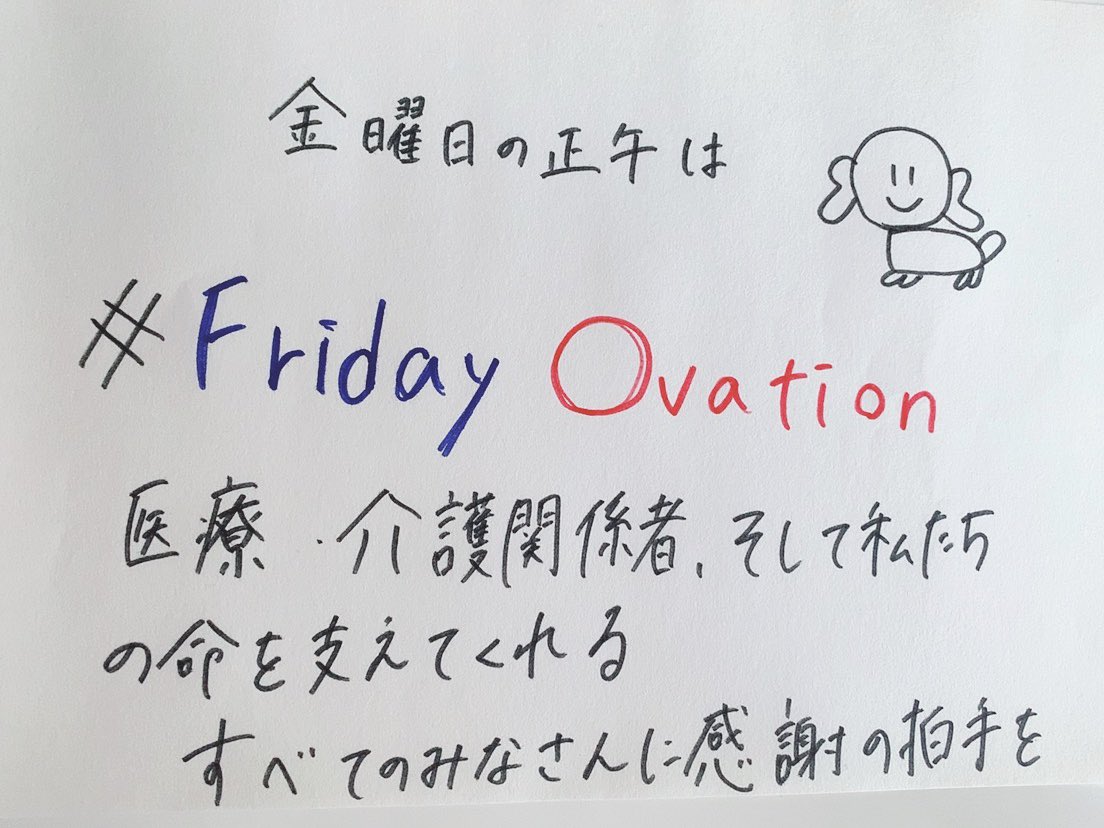 金曜日の正午は
#Friday Ovation
医療・介護関係者、そして私たち
の命を支えてくれる
すべてのみなさんに感謝の拍手を